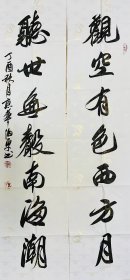 觀空有色西方月
聽世無聲南海潮
丁酉秋月